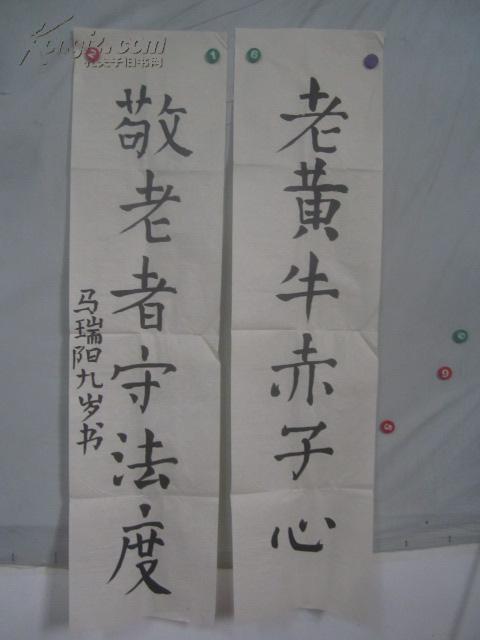 老黄牛赤子心
敬老者守法度
马瑞阳九岁书
kongfz.com
孔夫子旧书网